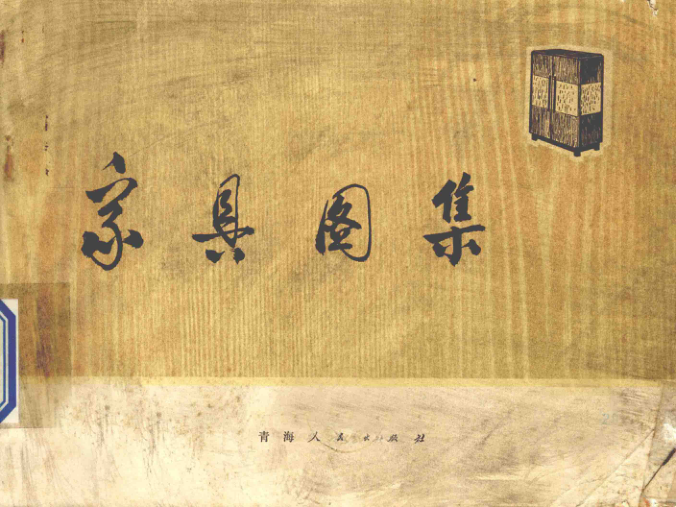 家具图集
青海人民出版社